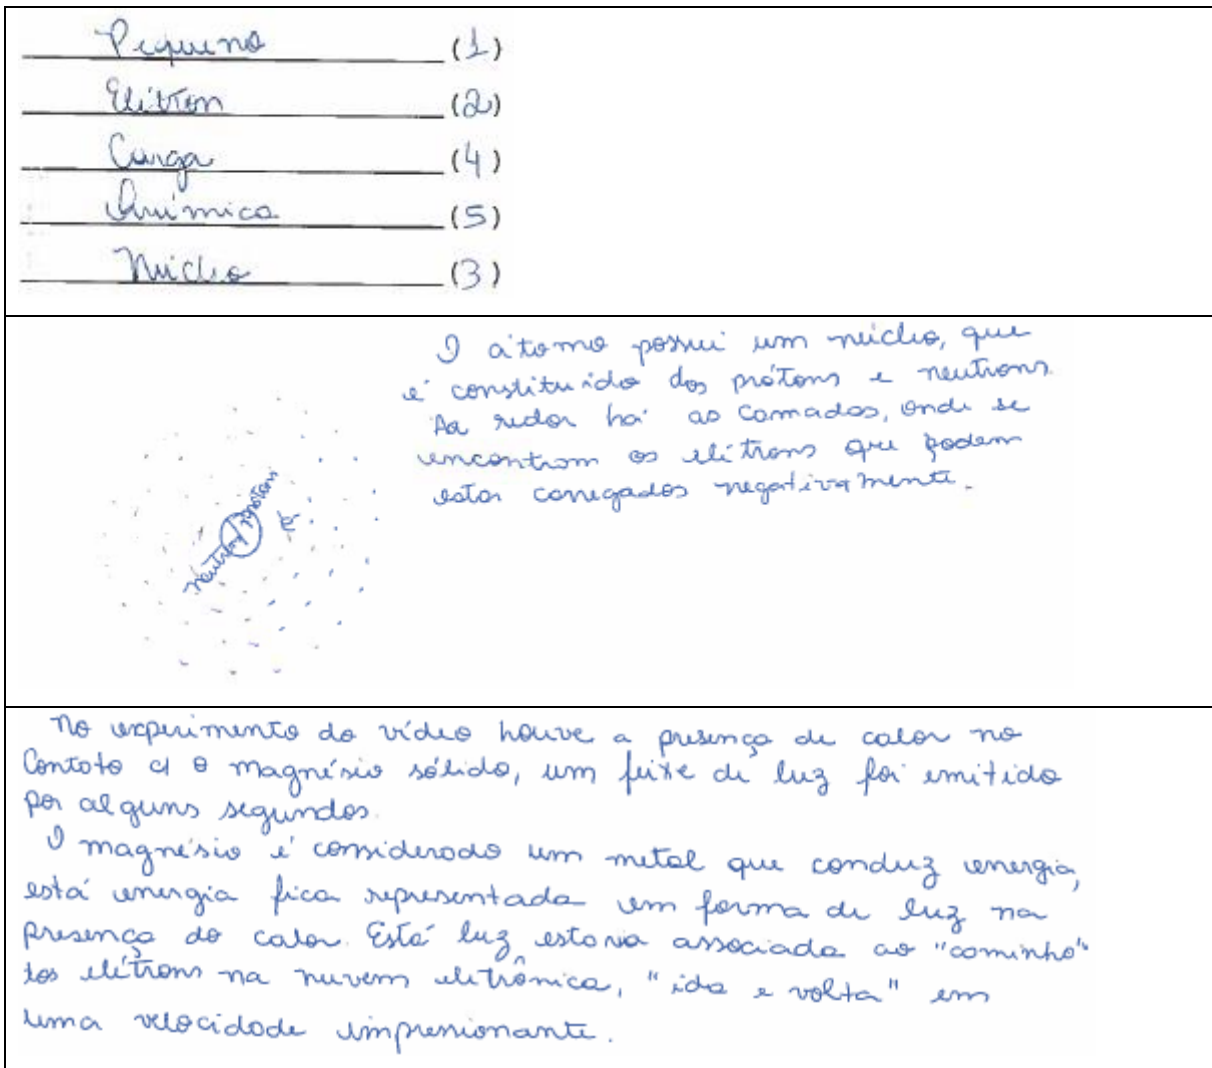 Pequeno (1)
Elétron (2)
Carga (4)
Química (5)
Núcleo (3)
O átomo possui um núcleo, que
é constituído dos prótons e neutrons.
Ao redor há as camadas, onde se
encontram os elétrons que podem
estar carregados negativamente.
neutrons prótons
e-
No experimento do vídeo houve a presença de calor no
Contato c/ o magnésio sólido, um feixe de luz foi emitido
por alguns segundos.
O magnésio é considerado um metal que conduz energia,
está energia fica representada em forma de luz na
presença do calor. Está luz estaria associada ao "caminho"
dos elétrons na nuvem eletrônica, "ida e volta" em
uma velocidade impresionante.